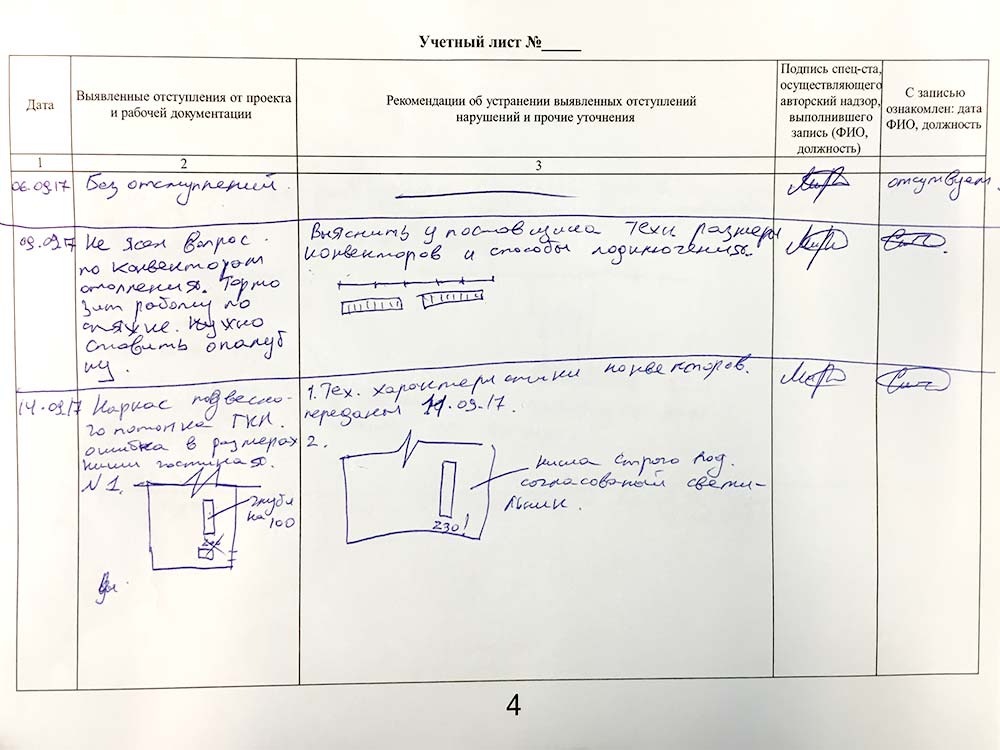 Учетный лист №_____
Дата
Выявленные отступления от проекта
и рабочей документации
Рекомендации об устранении выявленных отступлений
нарушений и прочие уточнения
Подпись спец-ста,
осуществляющего
авторский надзор,
выполнившего
запись (ФИО,
должность)
С записью
ознакомлен: дата
ФИО, должность
1
2
3
06.09.17
Без отступлений.
отсутвует.
09.09.17
Не ясен вопрос
по конвекторам
отопления. Тормо
зит работу по
стяжке. Нужно
ставить опалуб
ку.
Выяснить у поставщика техн размеры
конвекторов и способы подключения.
14.09.17
Каркас подвесно-
го потолка ГКЛ.
ошибка в размерах
ниши гостиная.
№1.
глуби
на 100
1. Тех. характеристики конвекторов.
переданы 11.09.17.
2.
ниша строго под.
согласованый светиль-
ник.
230!
4